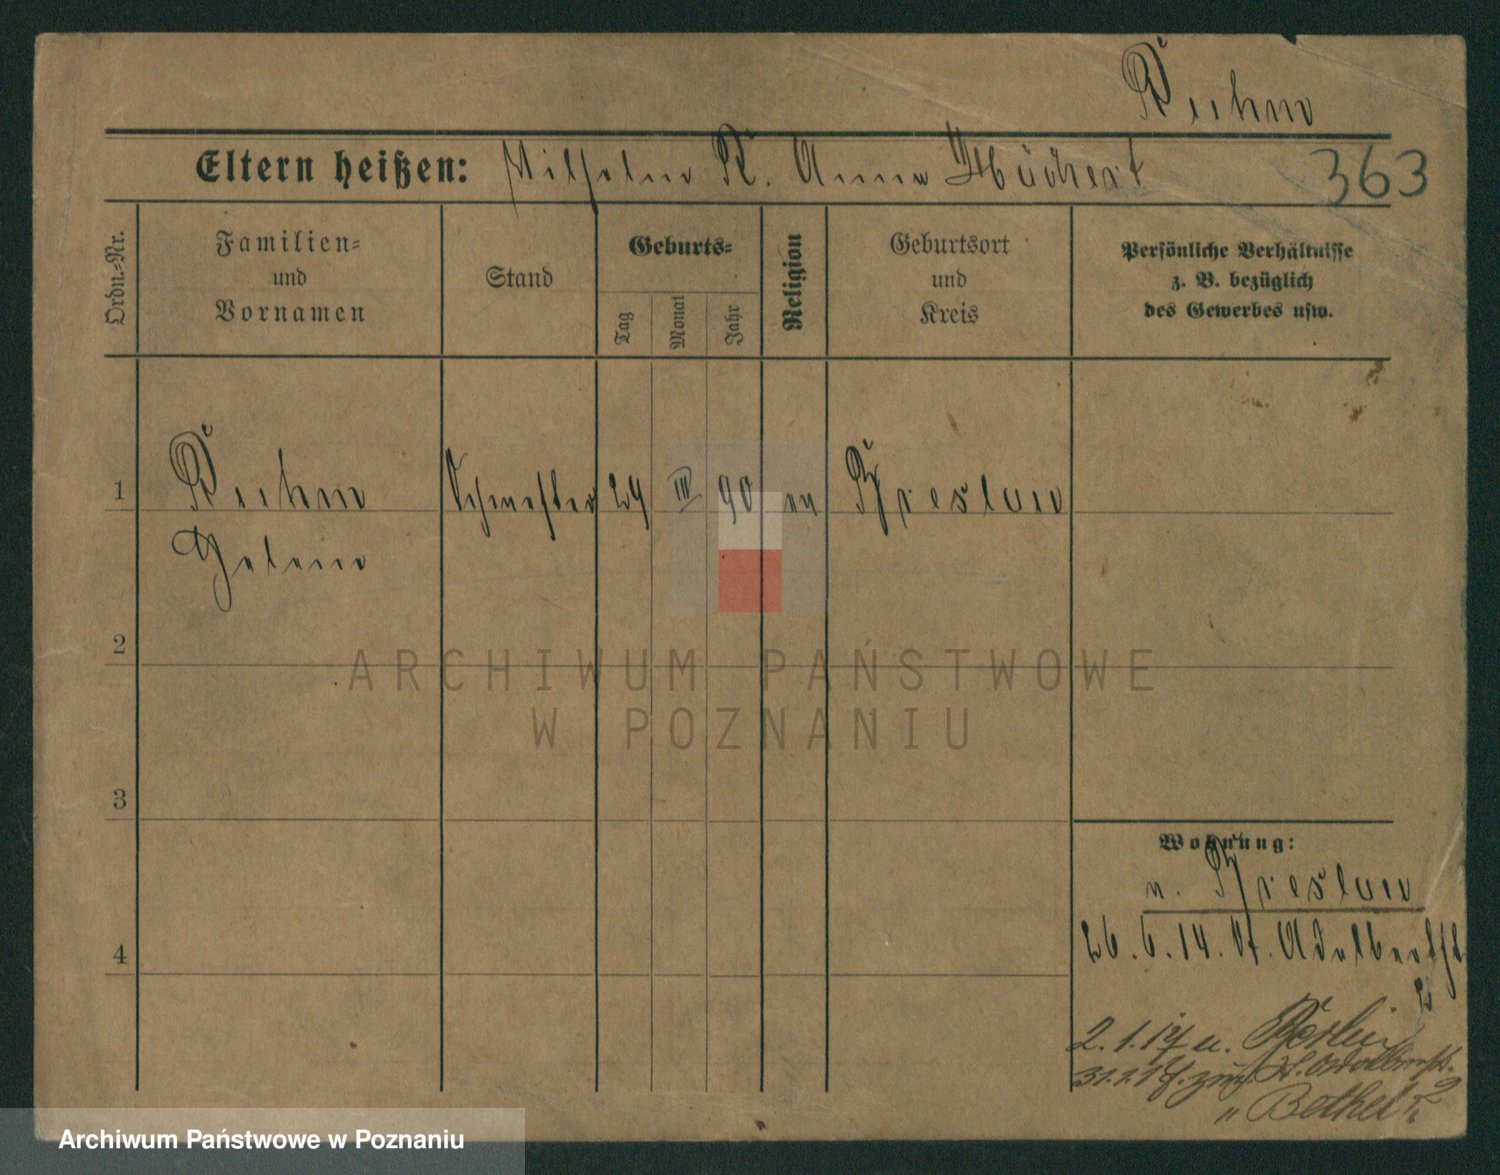 Kuhn
Eltern heißen: Wilhelm K. Anna
363
Ordn.-Nr.
Familien-
und
Vornamen
Stand
Geburts-
Tag
Monat
Jahr
Religion
Geburtsort
und
Kreis
Persönliche Verhältnisse
z. B. bezüglich
des Gewerbes usw.
1
Schwester
29
III
90
ev
Breslau
2
ARCHIWUM PAŃSTWOWE
W POZNANIU
3
Wohnung:
n. Breslau
4
26.6.14. St. Adalbertst.
2
2.1.17 n. Berlin
31.1.17. zur. St. Adalbertst. 2
" Bethel
Archiwum Państwowe w Poznaniu